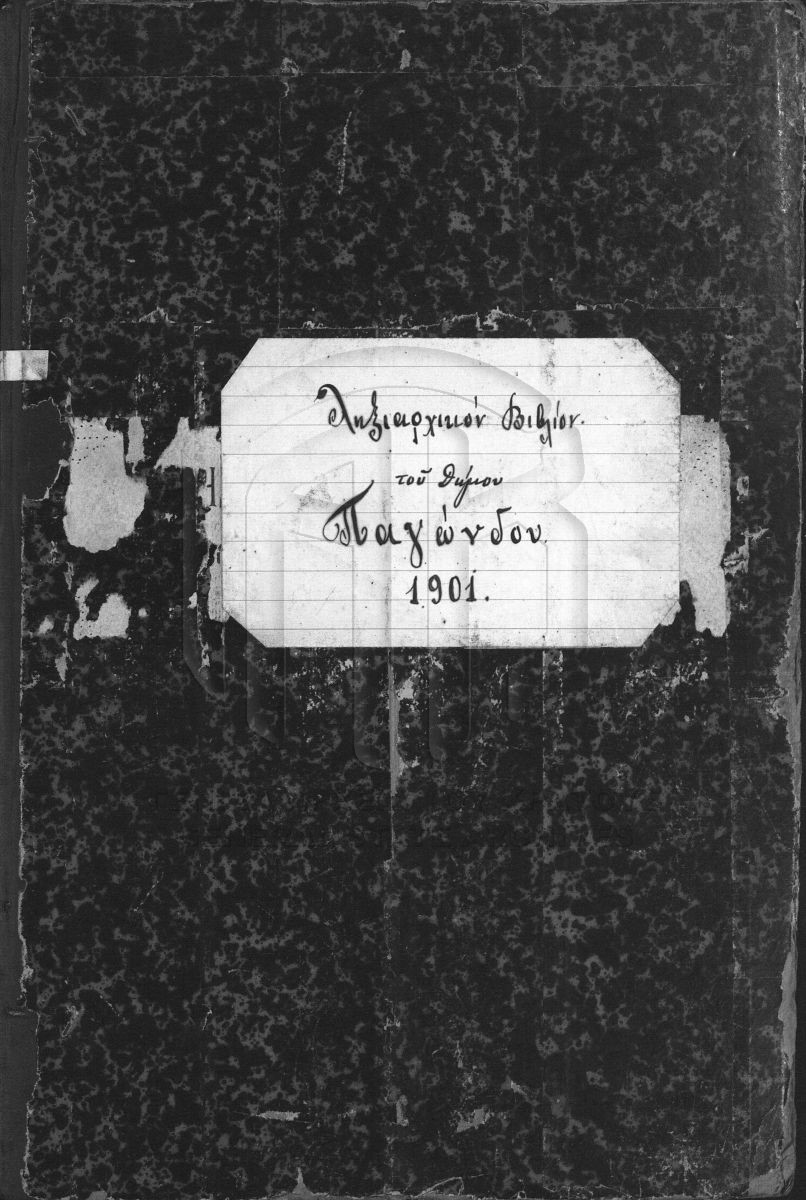 Ληξιαρχικόν Βιβλίον.
τοῦ Δήμου
Παγώνδου
1901.